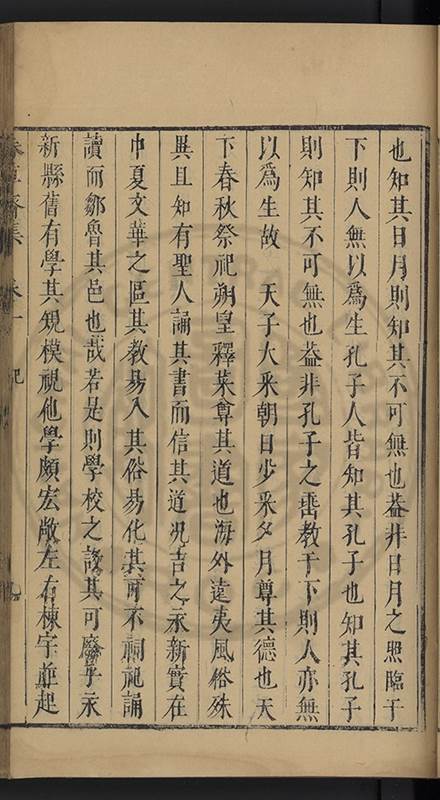 也知其日月則知其不可無也葢非日月之照臨于
下則人無以爲生孔子人皆知其孔子也知其孔子
則知其不可無也葢非孔子之垂教于下則人亦無
以爲生故　天子大采朝日少采夕月尊其德也天
下春秋祭祀朔望釋菜尊其道也海外遠夷風俗殊
異且知有聖人誦其書而信其道况吉之永新實在
中夏文華之區其教易入其俗易化其可不祠祀誦
讀而鄒魯其邑也哉若是則學校之設其可廢乎永
新縣舊有學其規模視他學頗宏敞左右棟宇並起
齋集　卷一　記　九